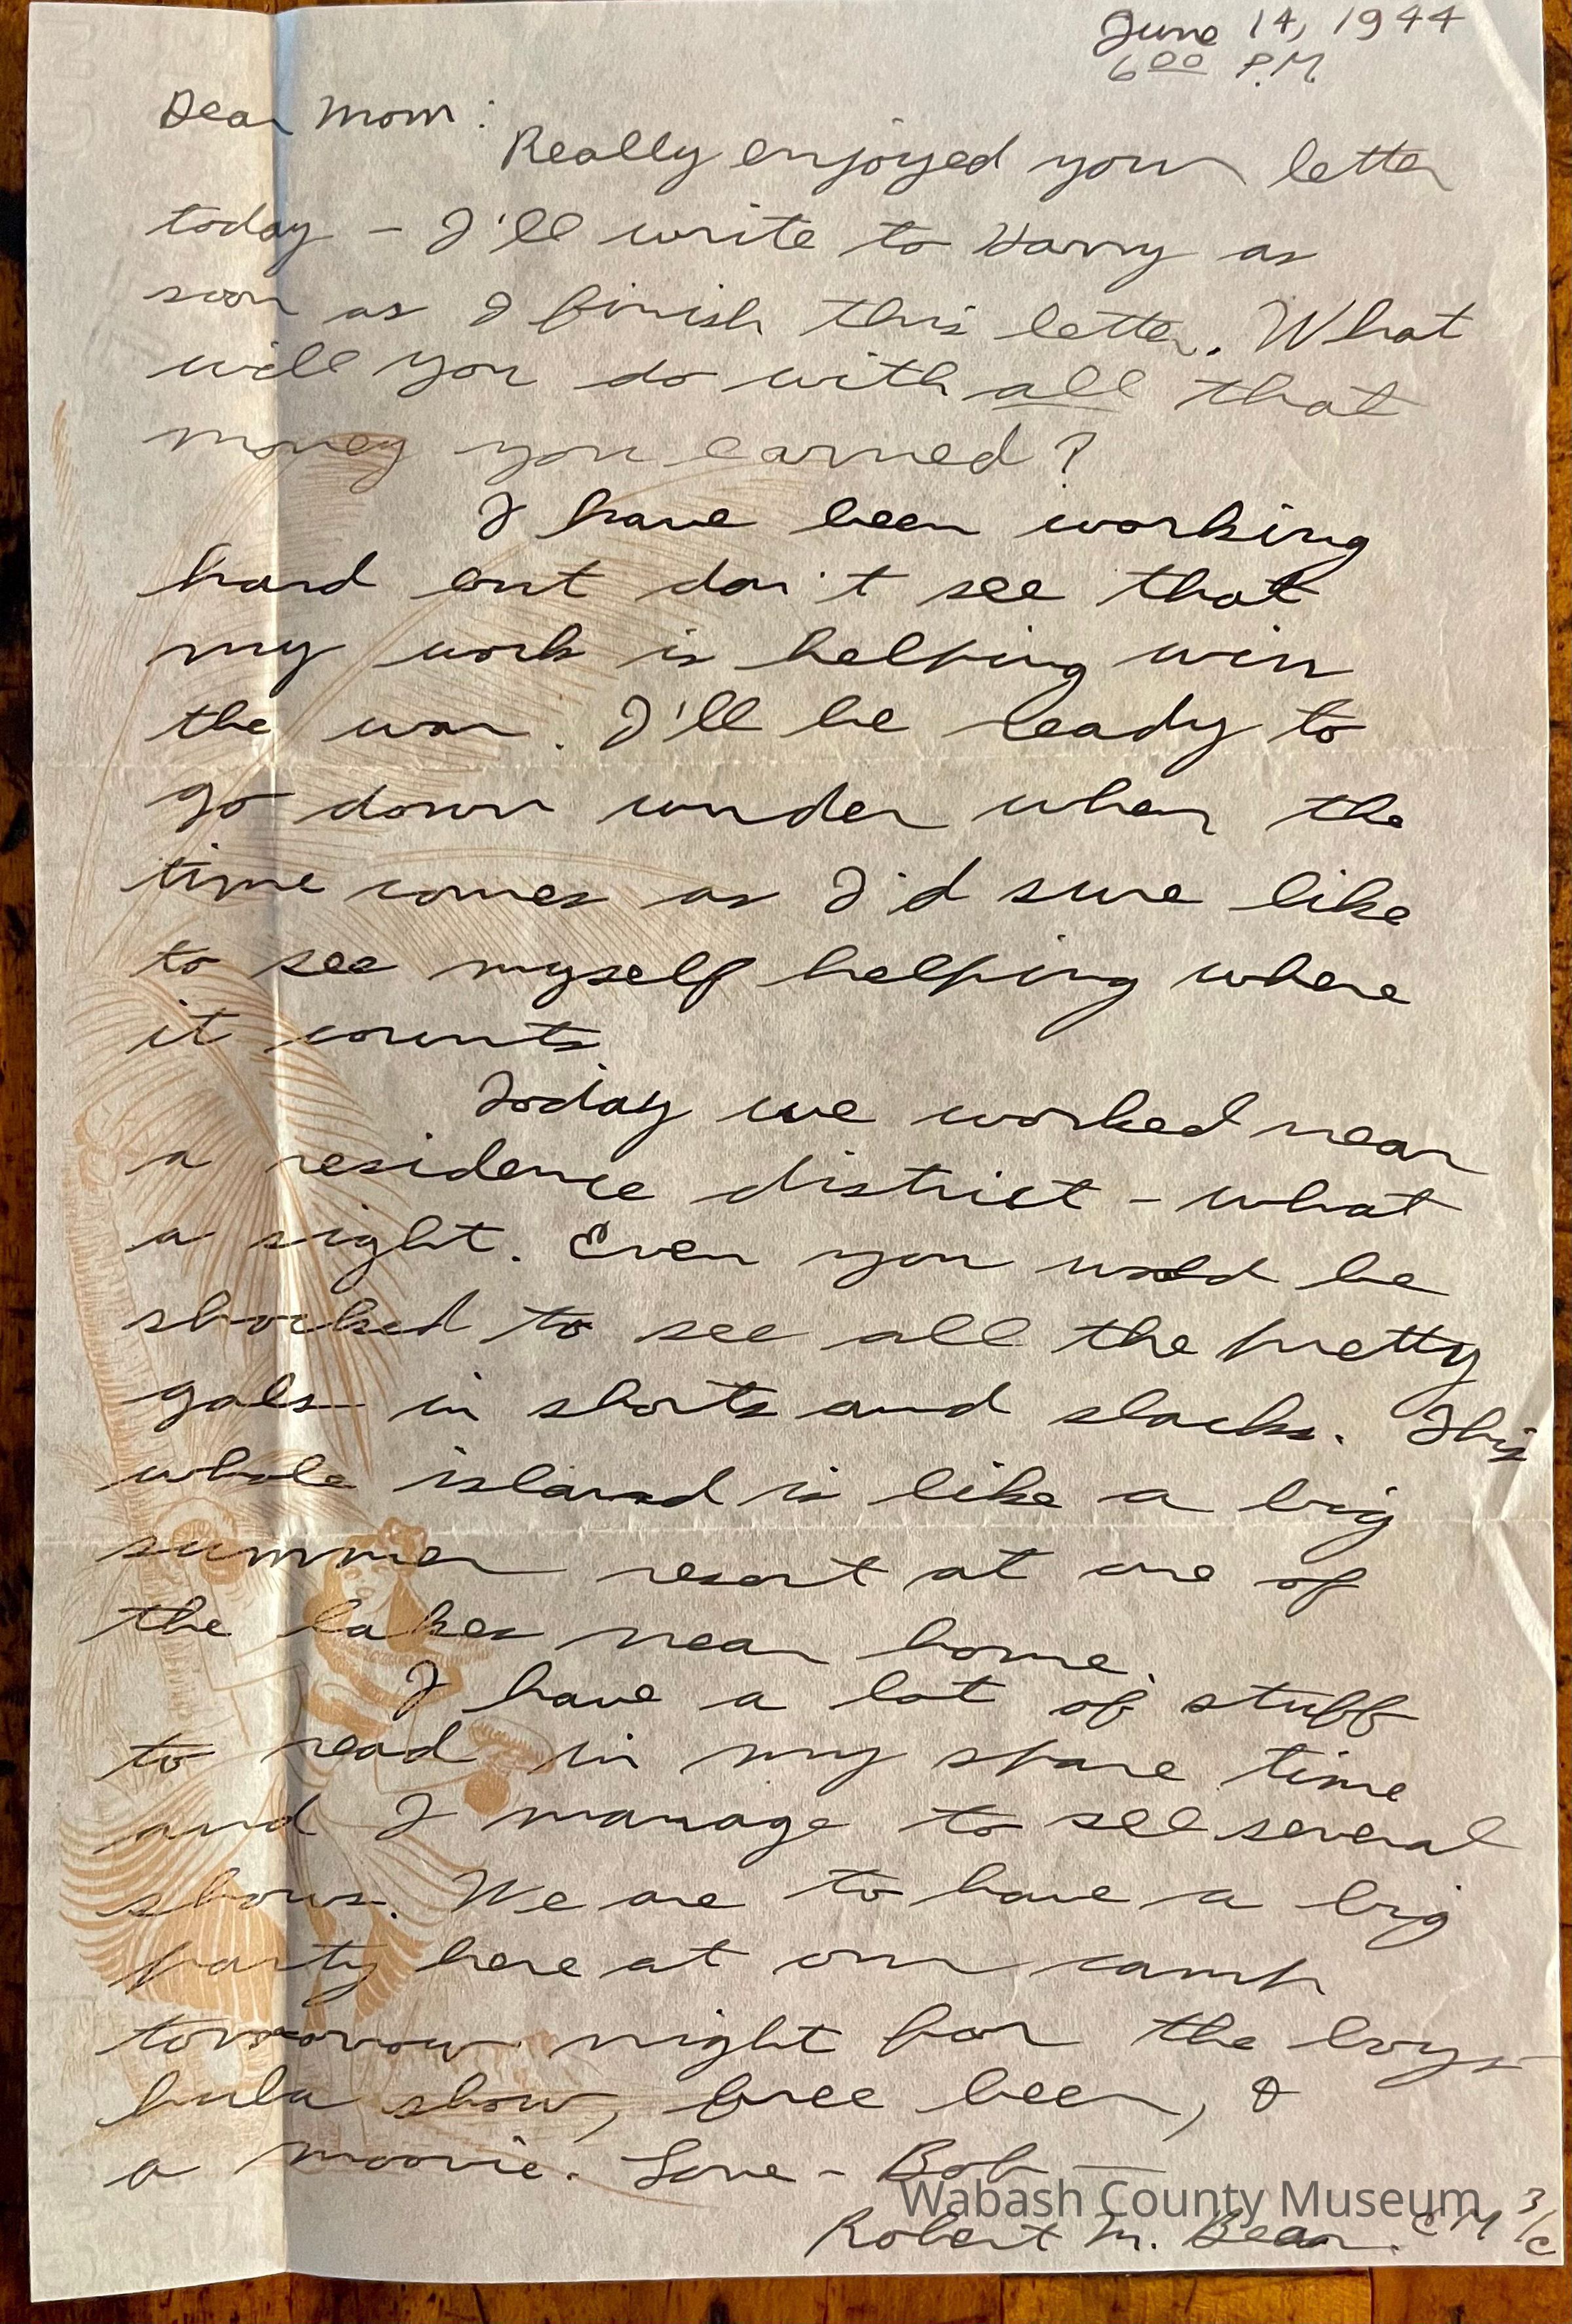 June 14, 1944
6 00 P.M.
Dear Mom:
Really enjoyed your letter
today - I'll write to Harry as
soon as I finish this letter. What
will you do with all that
money you earned?
I have been working
hard out don't see that
my work is helping win
the war. I'll be ready to
go down under when the
time comes as I'd sure like
to see myself helping where
it counts.
Today we worked near
a residence district - what
a sight. Even you would be
shocked to see all the pretty
gals in shorts and slacks. This
whole island is like a big
summer resort at one of
the lakes near home.
I have a lot of stuff
to read in my spare time
and I manage to see several
shows. We are to have a big
party here at our camp
tomorrow night for the boys-
hula show, free beer, &
a moovie. Love - Bob
Wabash County Museum
Robert M. Bear. CM 3/c